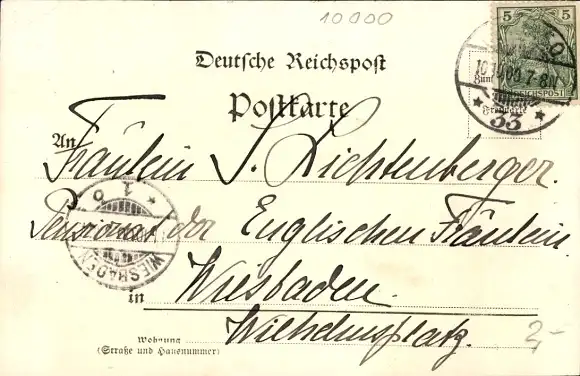 10000
5 5
Deutsche Reichspost
REICHSPOST
Postkarte
33
An
Fräulein S. Lichtenberger.
Pensionat der Englischen Fräulein
WIESBADEN
in
Wiesbaden.
Wilhelmsplatz.
Wohnung
(Straße und Hausnummer)
2,-